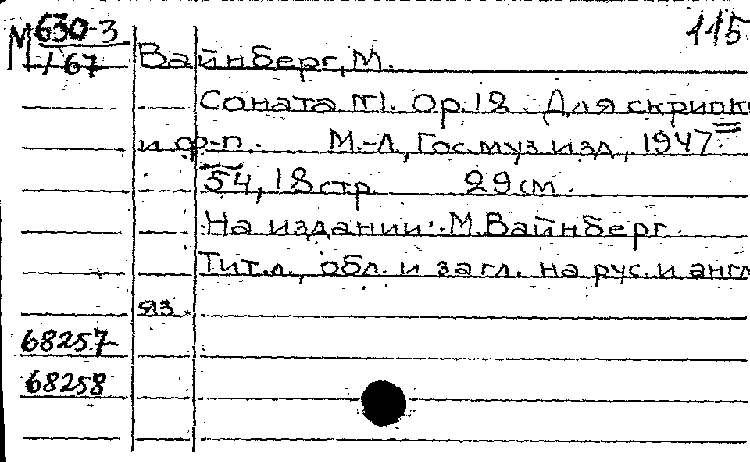 М 630-3 115
167 Вайнберг, М.
Соната №1. Ор.12. Для скрипк
и ф-п. М.-Л., Гос. муз. изд., 1947
54, 18 стр. 29 см.
На издании: М. Вайнберг
Тит. л., обл. и загл. на рус. и англ
яз.
68257
68258